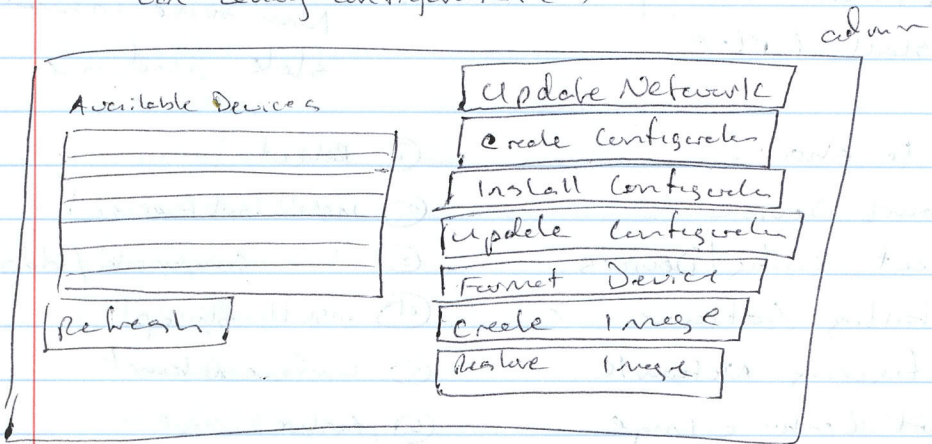 admin
Available Devices
Refresh
Update Network
Create Configuration
Install Configuration
Update Configuration
Format Device
Create Image
Restore Image